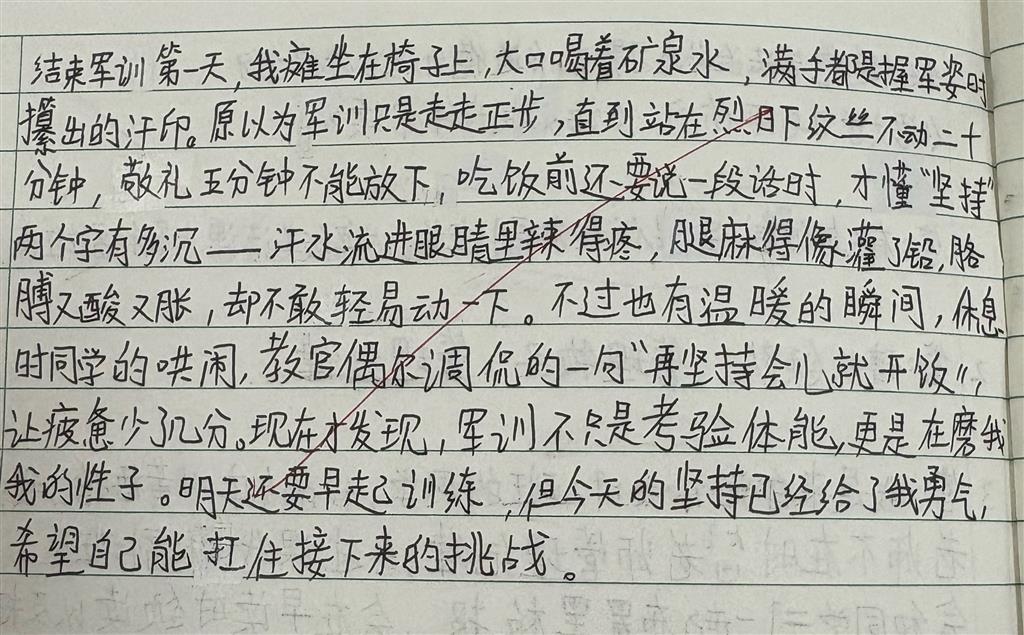 结束军训第一天,我瘫坐在椅子上,大口喝着矿泉水,满手都是握军姿时
攥出的汗印。原以为军训只是走走正步,直到站在烈日下纹丝不动二十
分钟,敬礼五分钟不能放下,吃饭前还要说一段话时,才懂“坚持”
两个字有多沉——汗水流进眼睛里辣得疼,腿麻得像灌了铅,胳
膊又酸又胀,却不敢轻易动一下。不过也有温暖的瞬间,休息
时同学的哄闹,教官偶尔调侃的一句“再坚持会儿就开饭”,
让疲惫少了几分。现在才发现,军训不只是考验体能,更是在磨我
我的性子。明天还要早起训练,但今天的坚持已经给了我勇气,
希望自己能扛住接下来的挑战。